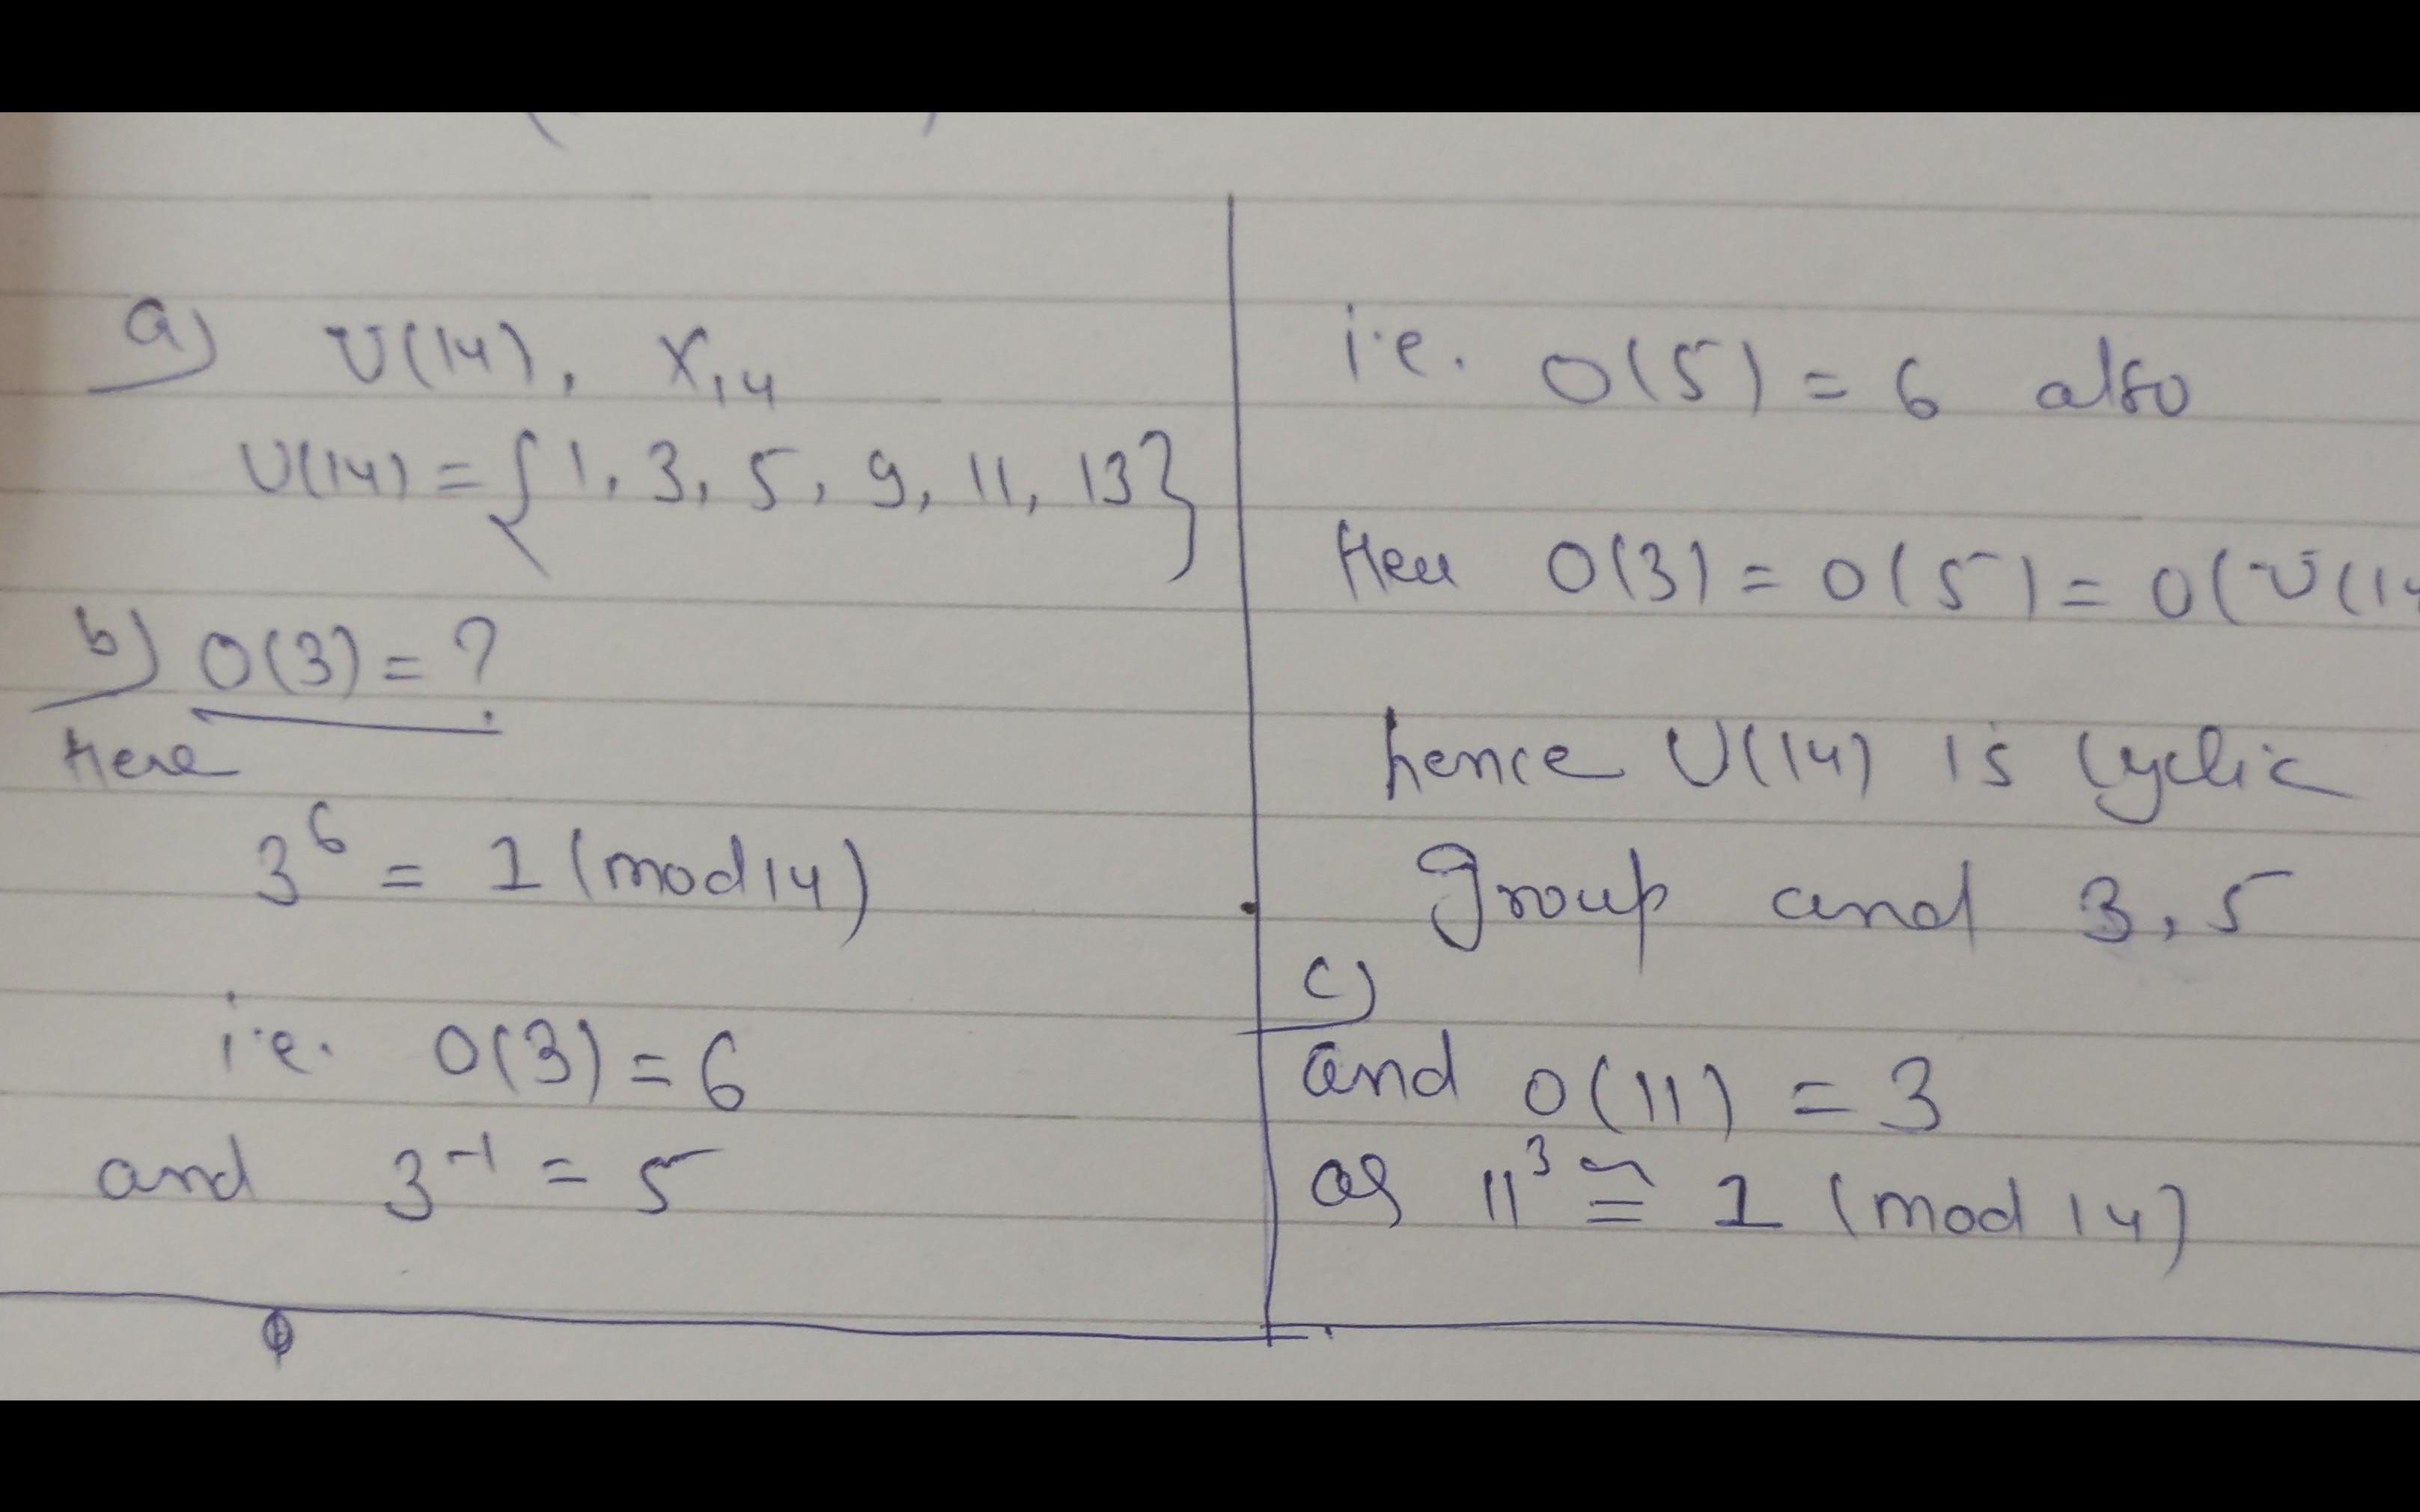 a) U(14), X14
U(14) = {1, 3, 5, 9, 11, 13}
b) O(3) = ?
Here
3⁶ = 1 (mod 14)
i.e. O(3) = 6
and 3⁻¹ = 5
i.e. O(5) = 6 also
Here O(3) = O(5) = O(U(14
hence U(14) is cyclic
group and 3, 5
c)
and O(11) = 3
as 11³ ≅ 1 (mod 14)